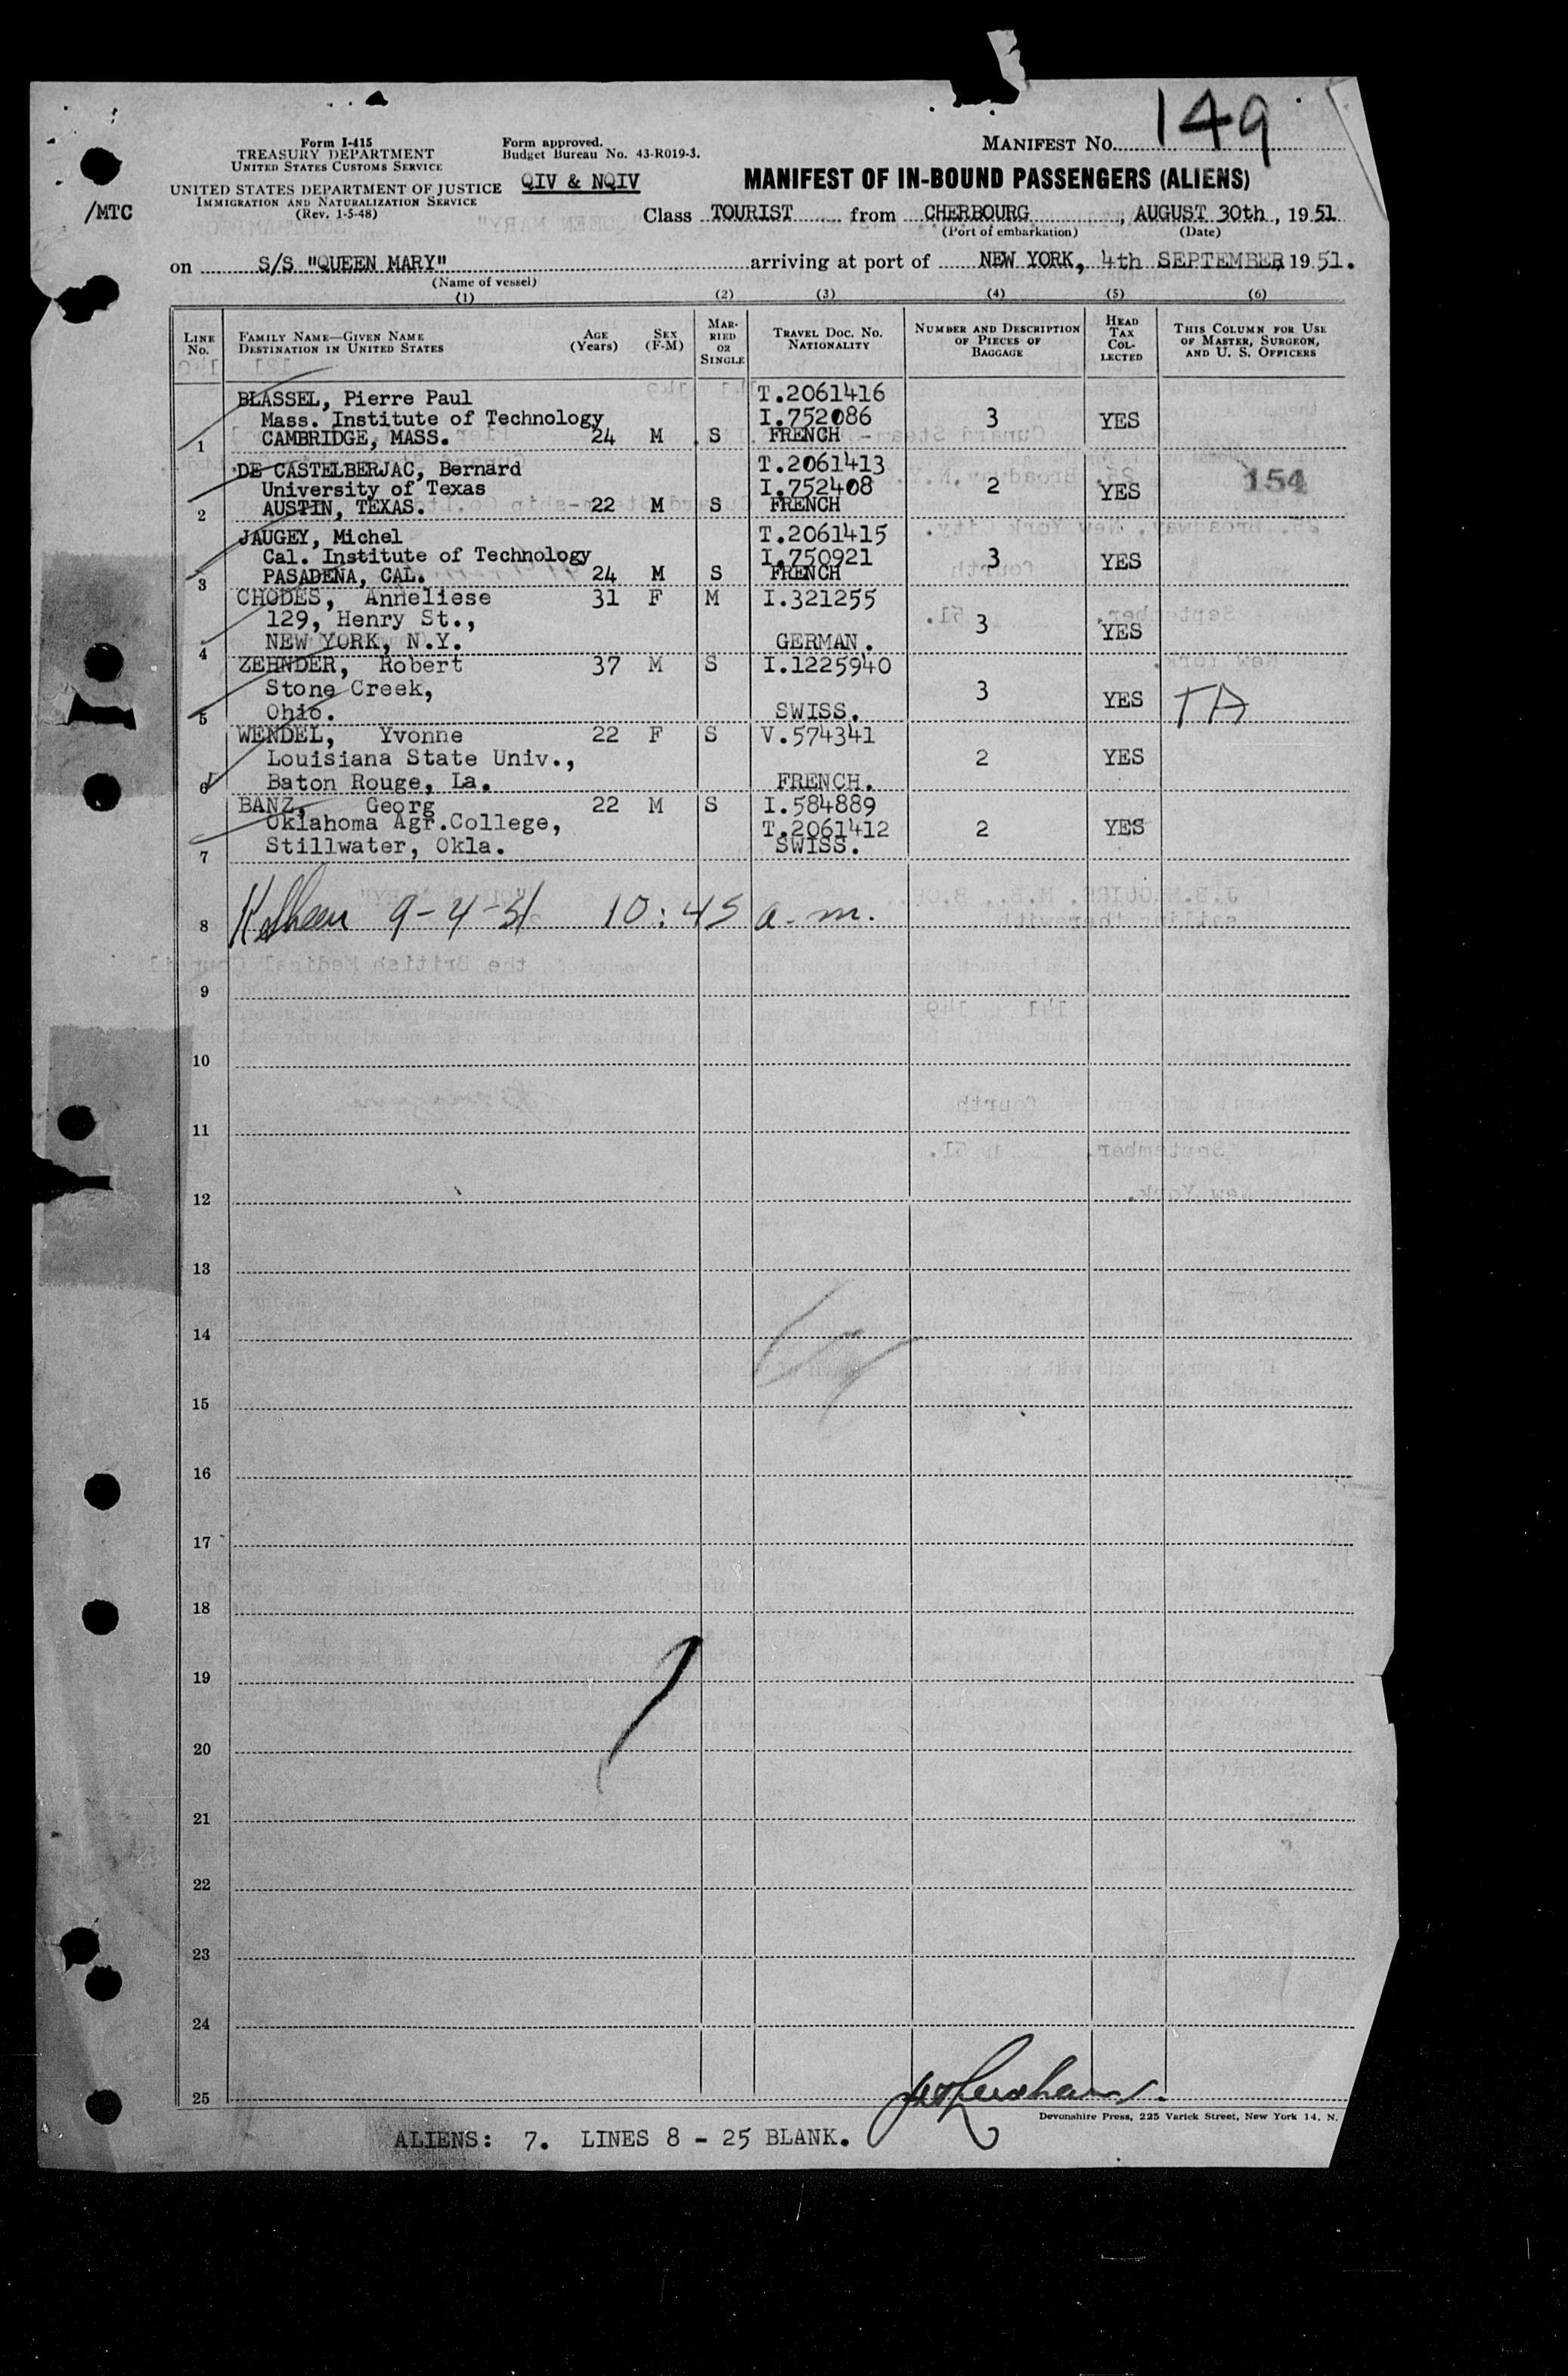 149
Form I-415
TREASURY DEPARTMENT
UNITED STATES CUSTOMS SERVICE
UNITED STATES DEPARTMENT OF JUSTICE
IMMIGRATION AND NATURALIZATION SERVICE
(Rev. 1-5-48)
/MTC
Form approved.
Budget Bureau No. 43-R019-3.
QIV & NQIV
MANIFEST NO.
MANIFEST OF IN-BOUND PASSENGERS (ALIENS)
Class TOURIST from CHERBOURG, AUGUST 30th, 1951
(Port of embarkation) (Date)
on S/S "QUEEN MARY" arriving at port of NEW YORK, 4th SEPTEMBER 1951.
(Name of vessel)
(1) (2) (3) (4) (5) (6)
LINE NO. FAMILY NAME—GIVEN NAME DESTINATION IN UNITED STATES AGE (Years) SEX (F-M) MARRIED OR SINGLE TRAVEL DOC. NO. NATIONALITY NUMBER AND DESCRIPTION OF PIECES OF BAGGAGE HEAD TAX COLLECTED THIS COLUMN FOR USE OF MASTER, SURGEON, AND U. S. OFFICERS
BLASSEL, Pierre Paul T.2061416
Mass. Institute of Technology I.752086 3 YES
1 CAMBRIDGE, MASS. 24 M S FRENCH -
DE CASTELBERJAC, Bernard T.2061413
University of Texas I.752408 2 YES 154
2 AUSTIN, TEXAS. 22 M S FRENCH
JAUGEY, Michel T.2061415
Cal. Institute of Technology I.750921 3 YES
3 PASADENA, CAL. 24 M S FRENCH
CHODES, Anneliese 31 F M I.321255
129, Henry St., 3 YES
4 NEW YORK, N.Y. GERMAN.
ZEHNDER, Robert 37 M S I.1225940
Stone Creek, 3 YES TA
5 Ohio. SWISS.
WENDEL, Yvonne 22 F S V.574341
Louisiana State Univ., 2 YES
6 Baton Rouge, La. FRENCH.
BANZ, Georg 22 M S I.584889
Oklahoma Agr.College, T.2061412 2 YES
7 Stillwater, Okla. SWISS.
8 9-4-51 10:45 a.m.
9
10
11
12
13
14
15
16
17
18
19
20
21
22
23
24
25
Devonshire Press, 225 Varick Street, New York 14, N.
ALIENS: 7. LINES 8 - 25 BLANK.